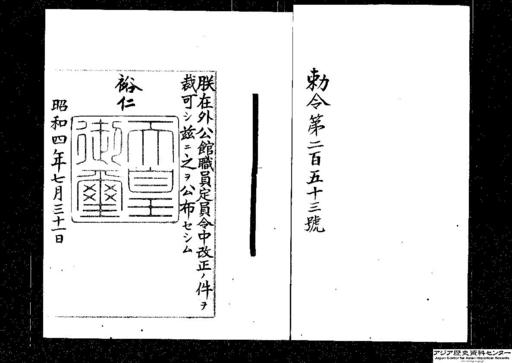 勅令第二百五十三號
朕在外公館職員定員令中改正ノ件ヲ
裁可シ茲ニ之ヲ公布セシム
裕仁
天皇
御璽
昭和四年七月三十一日
アジア歴史資料センター
Japan Center for Asian Historical Records